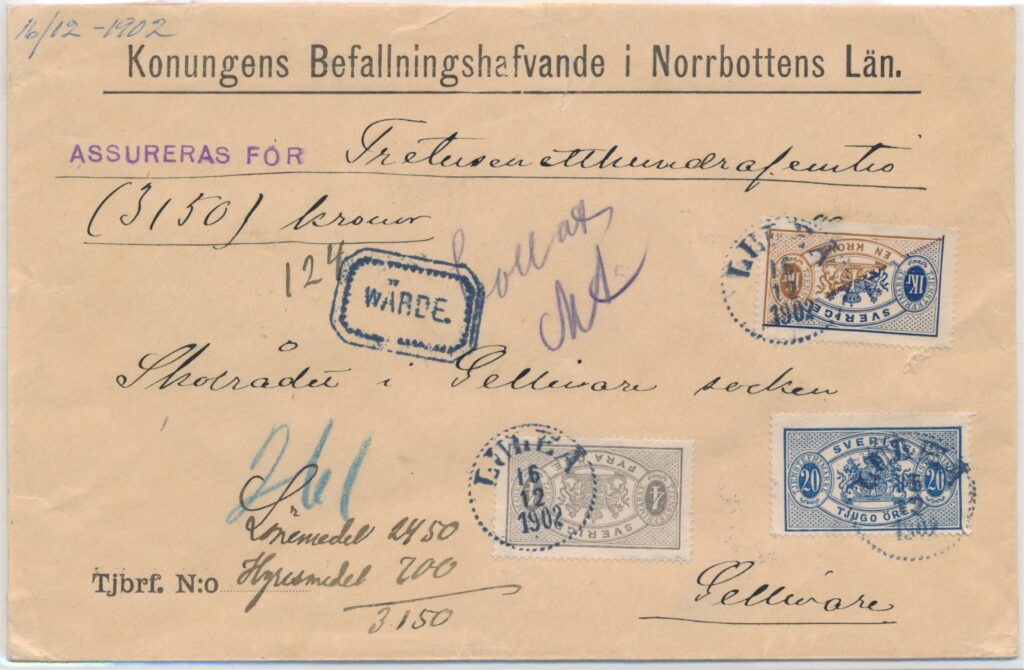 16/12 - 1902
Konungens Befallningshafvande i Norrbottens Län.
ASSURERAS FÖR Tretusenetthundrafemtio
(3150) kronor
124
WÄRDE.
LULEÅ
16
12
1902
EN KRONA
1 KR.
SVERIGE
Skolrådet i Gellivare socken
261
LULEÅ
16
12
1902
FYRA
4
SVERIGE
SVERIGE
20
20
TJUGO ÖRE
TJENSTEFRIMÄRKE
LULEÅ
1902
Lönemedel 2450
Tjbrf. N:o Hyresmedel 700
3150
Gellivare